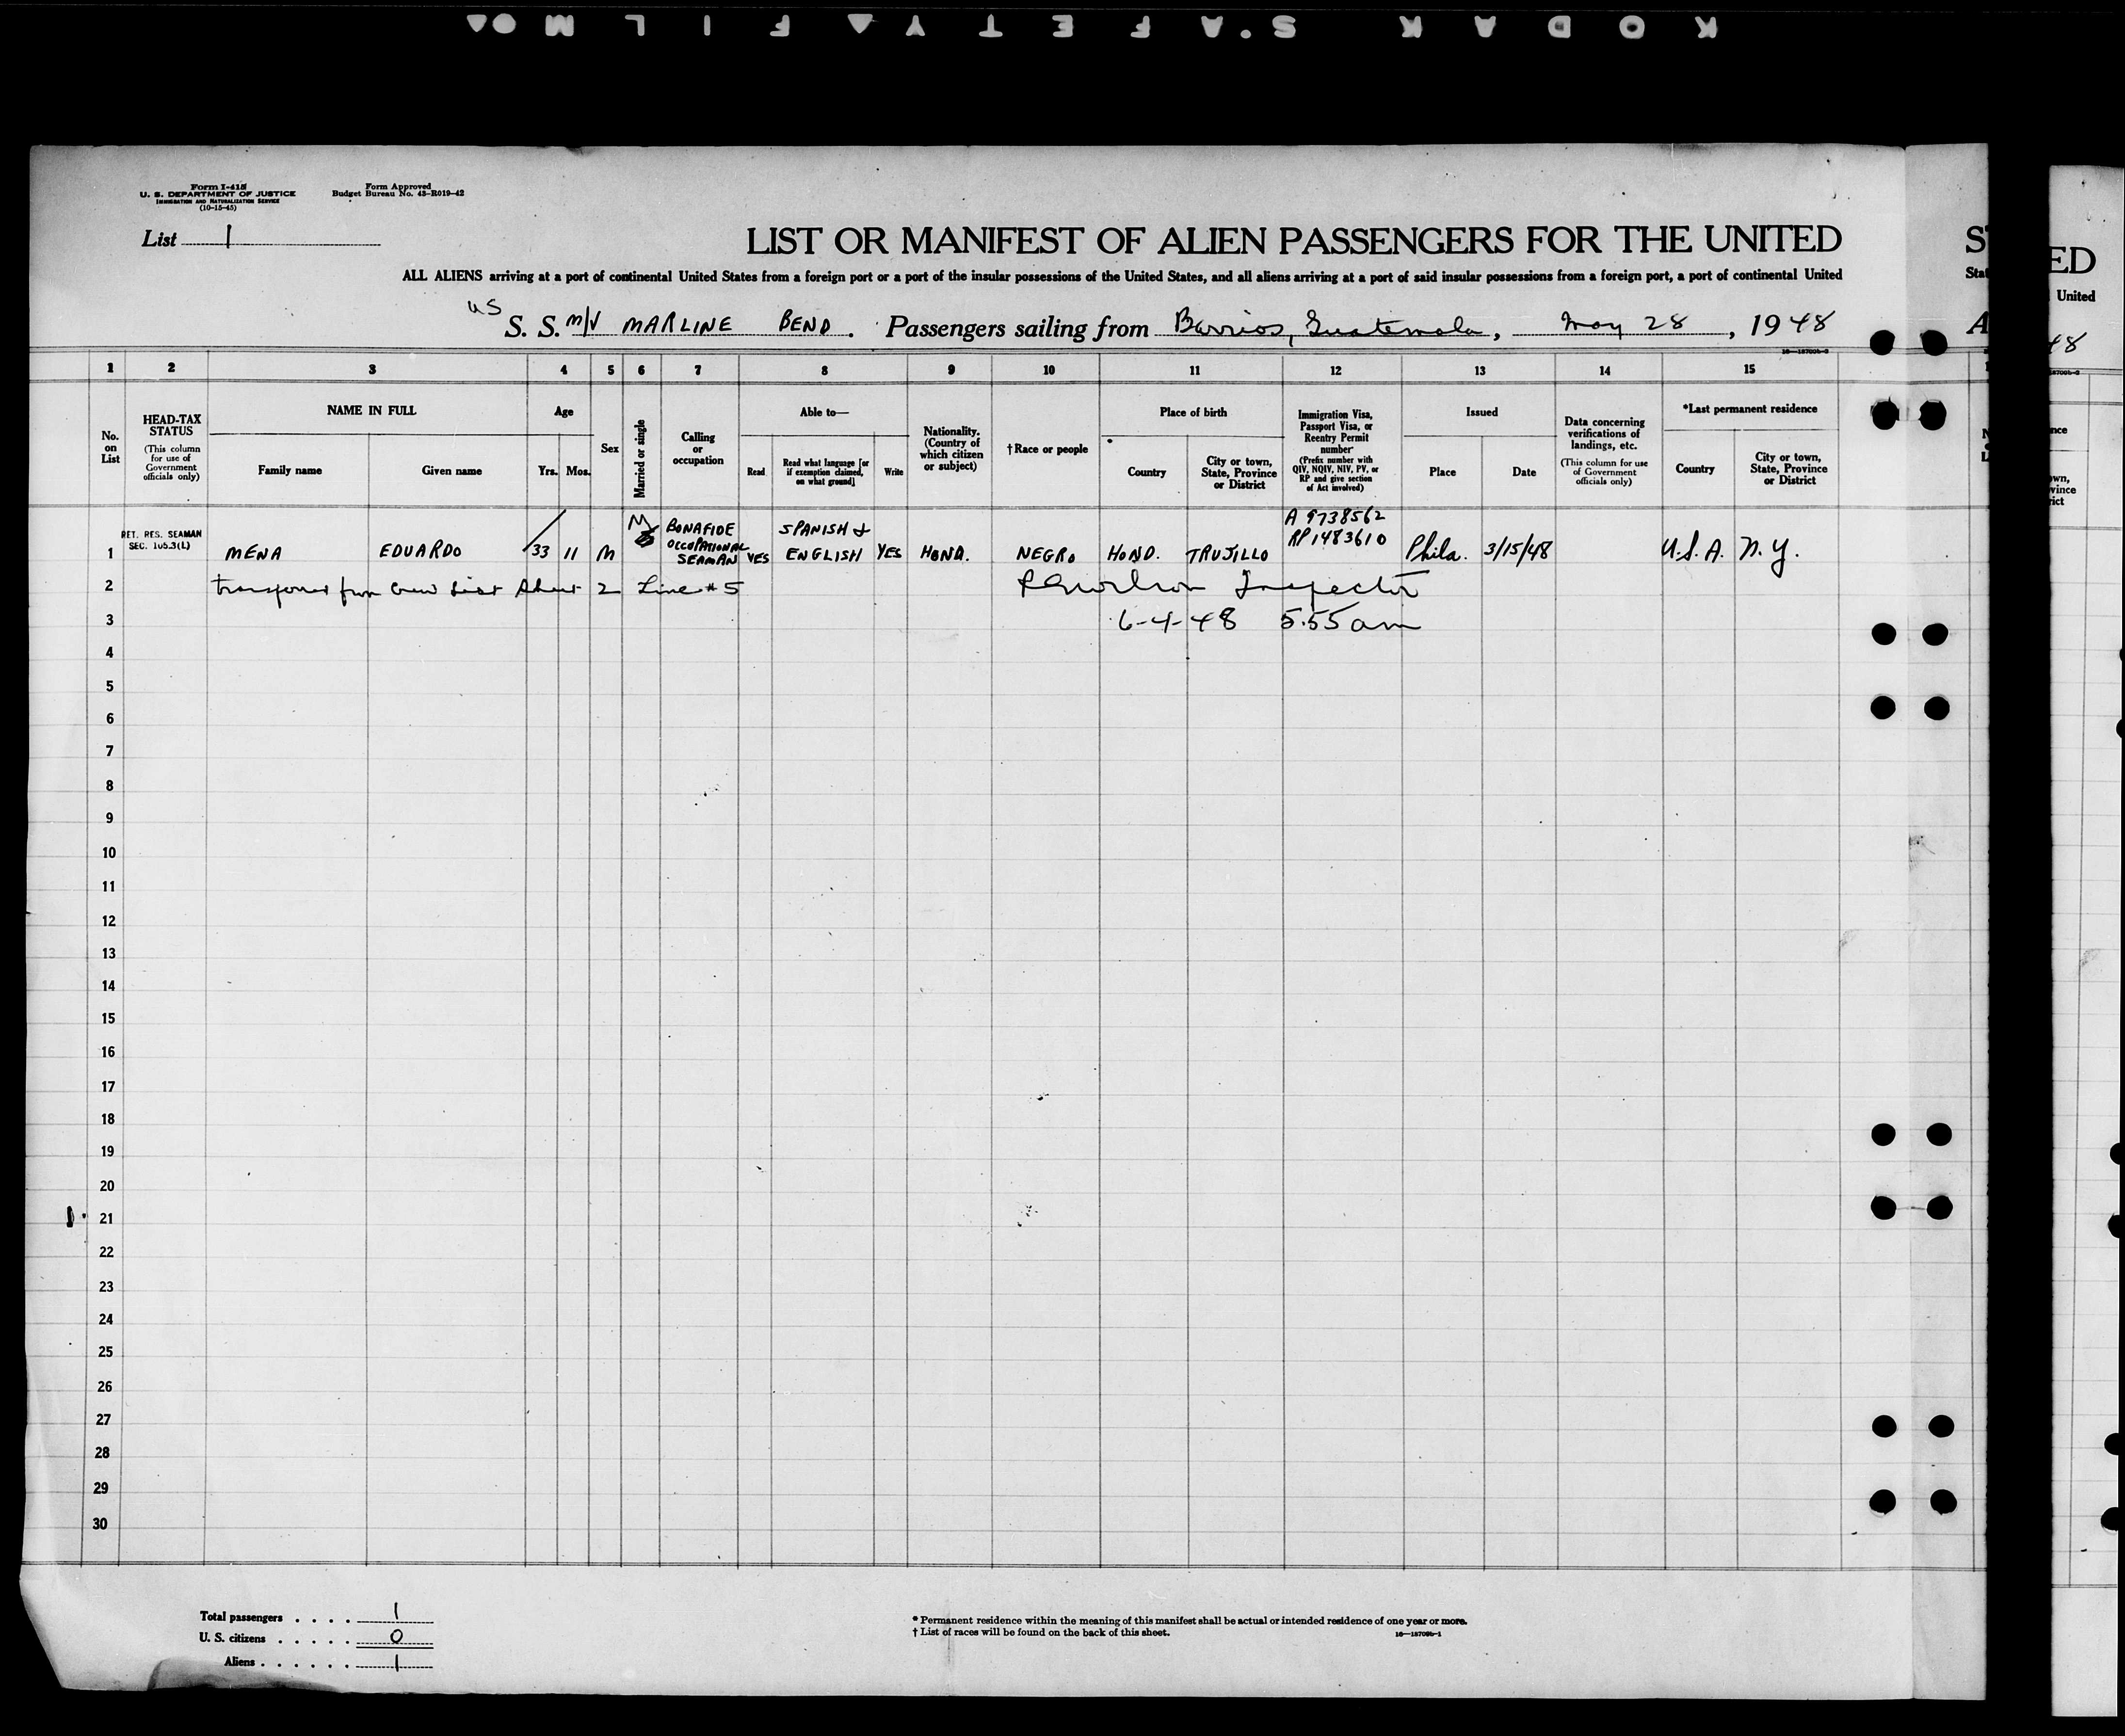 KODAK S.AFETY FILM
Form I-415
U. S. DEPARTMENT OF JUSTICE
IMMIGRATION AND NATURALIZATION SERVICE
(10-15-45)
Form Approved
Budget Bureau No. 43-R019-42
List 1
LIST OR MANIFEST OF ALIEN PASSENGERS FOR THE UNITED
ALL ALIENS arriving at a port of continental United States from a foreign port or a port of the insular possessions of the United States, and all aliens arriving at a port of said insular possessions from a foreign port, a port of continental United
US
S. S. M/V MARLINE BEND. Passengers sailing from Barrios, Guatemala, May 28, 1948
1 2 3 4 5 6 7 8 9 10 11 12 13 14 15
No. on List
HEAD-TAX STATUS
(This column for use of Government officials only)
NAME IN FULL
Family name
Given name
Age
Yrs. Mos.
Sex
Married or single
Calling or occupation
Able to—
Read
Read what language [or if exemption claimed, on what ground]
Write
Nationality. (Country of which citizen or subject)
†Race or people
Place of birth
Country
City or town, State, Province or District
Immigration Visa, Passport Visa, or Reentry Permit number
(Prefix number with QIV, NQIV, NIV, PV, or RP and give section of Act involved)
Issued
Place
Date
Data concerning verifications of landings, etc.
(This column for use of Government officials only)
*Last permanent residence
Country
City or town, State, Province or District
RET. RES. SEAMAN
SEC. 105.3(L)
1 MENA EDUARDO 33 11 M M BONAFIDE OCCUPATIONAL SEAMAN YES SPANISH & ENGLISH YES HOND. NEGRO HOND. TRUJILLO A 9738562 RP 1483610 Phila. 3/15/48 U.S.A. N.Y.
2 Transferred from Crew List Sheet 2 Line #5 Inspector
3 6-4-48 5:55 am
4
5
6
7
8
9
10
11
12
13
14
15
16
17
18
19
20
21
22
23
24
25
26
27
28
29
30
Total passengers . . . . 1
U. S. citizens . . . . . 0
Aliens . . . . . . 1
* Permanent residence within the meaning of this manifest shall be actual or intended residence of one year or more.
† List of races will be found on the back of this sheet.
ED
United
48